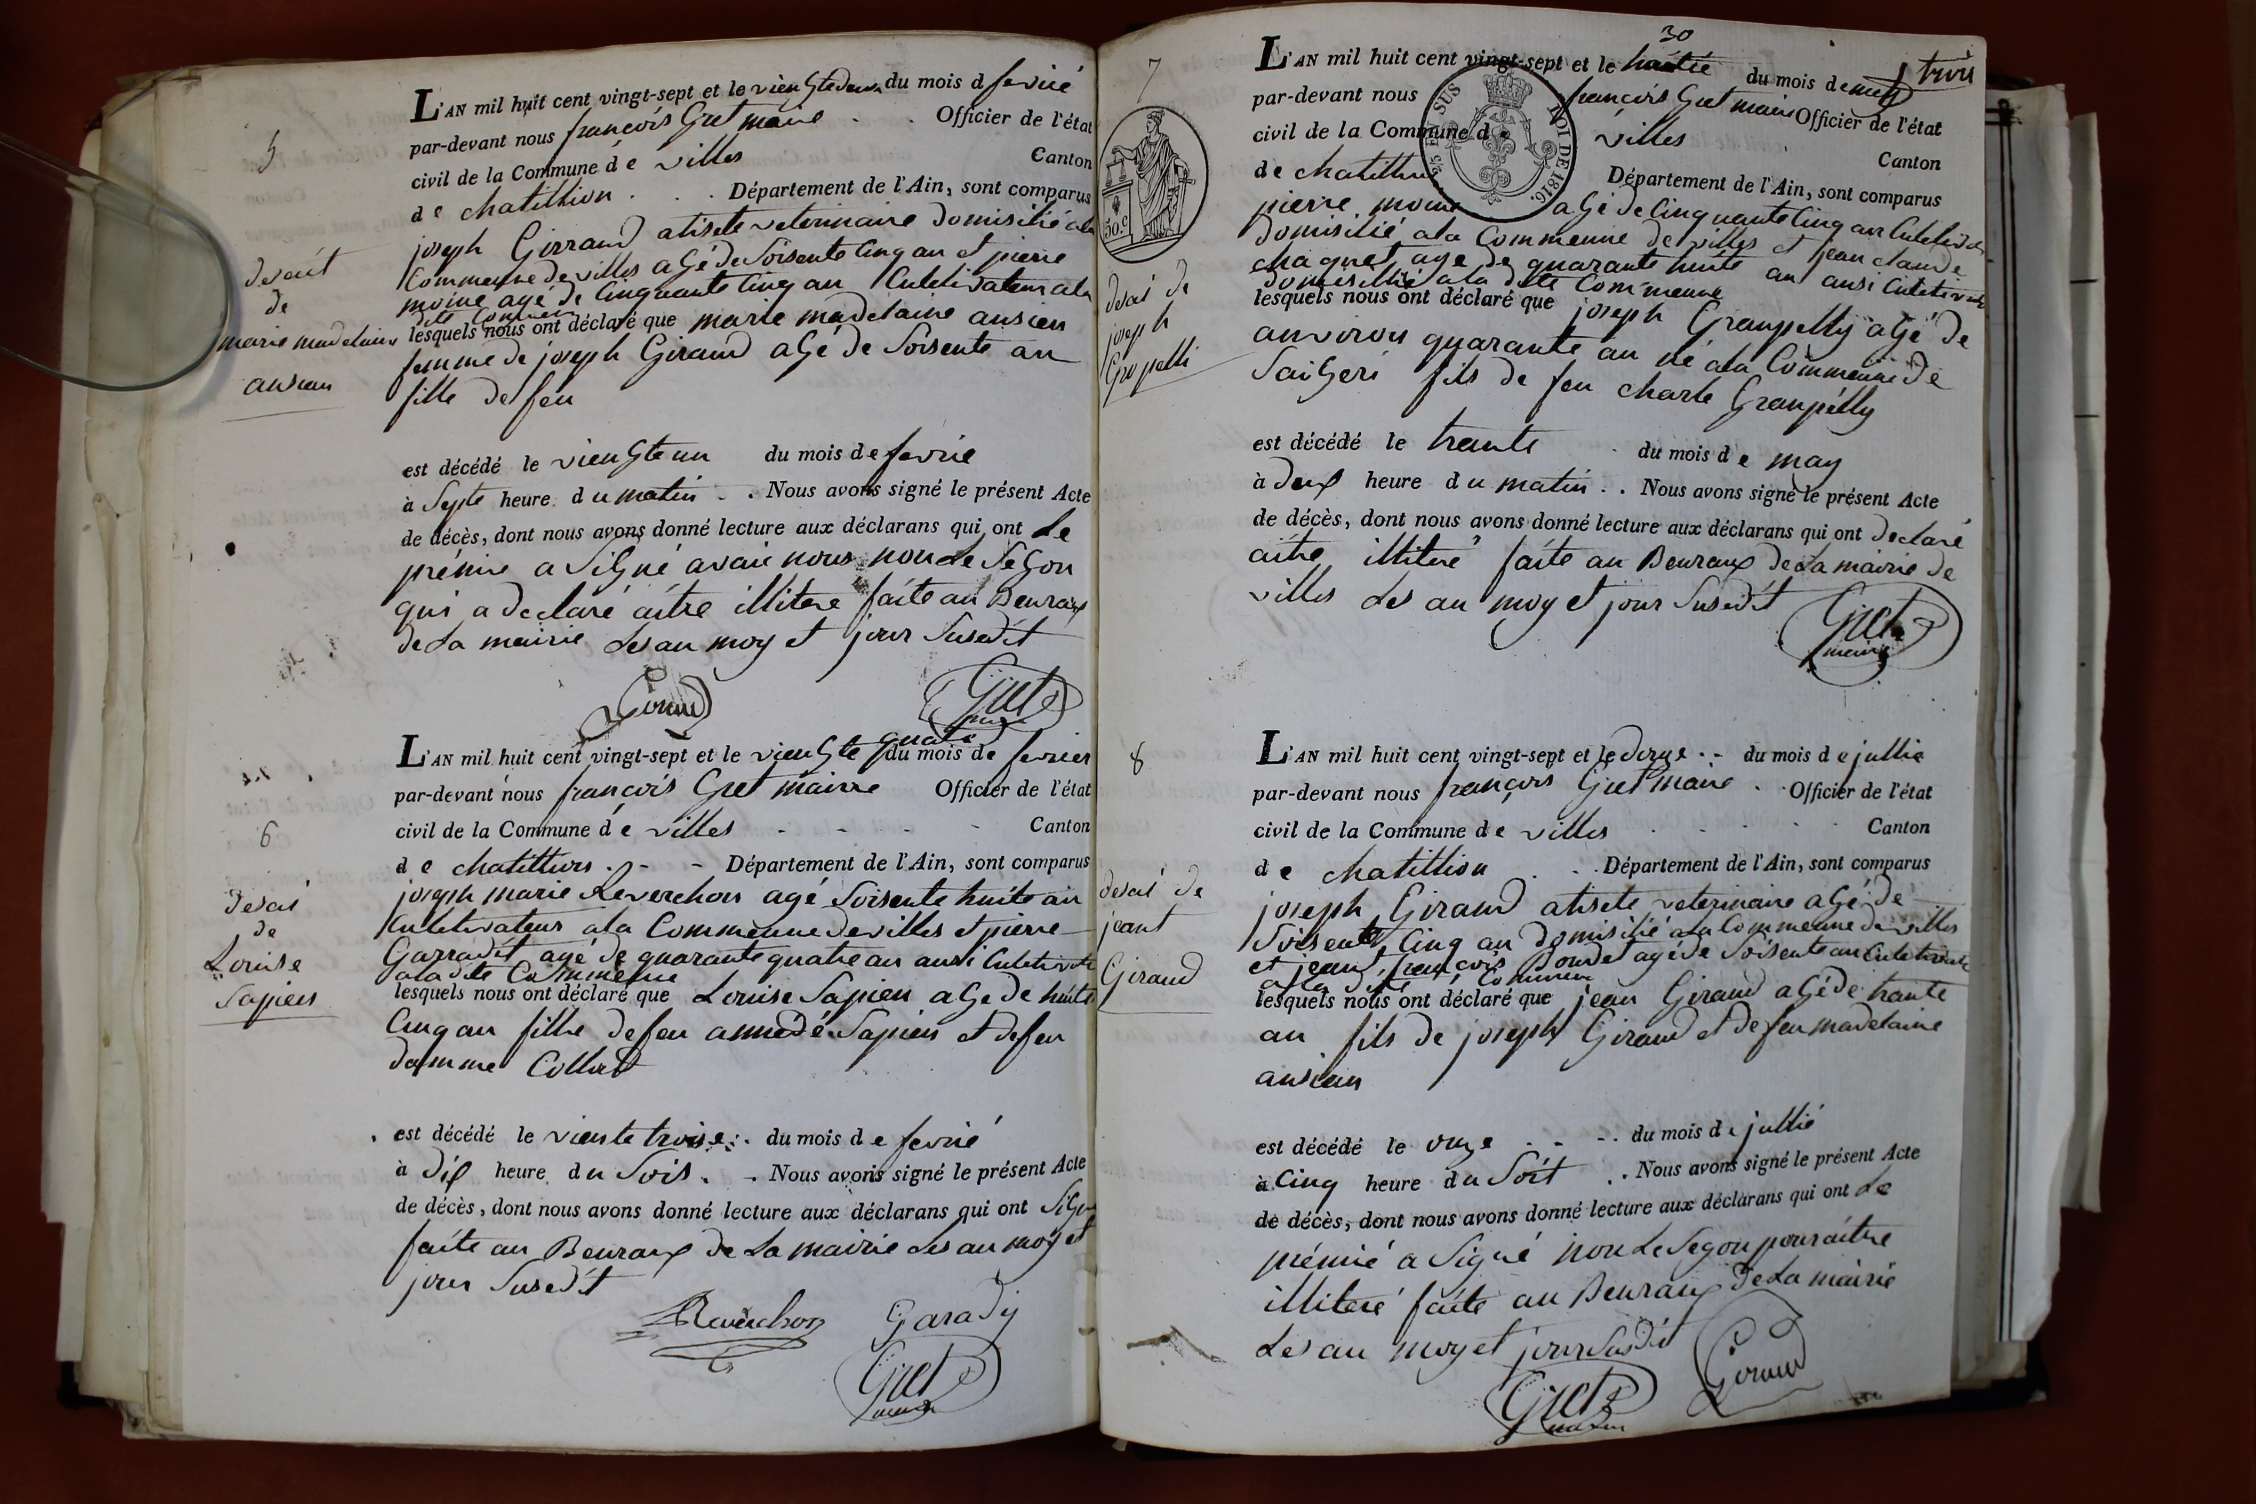 5
desait
de
marie madelaine
ansien
L'AN mil huit cent vingt-sept et le viengtedeux du mois d fevrié
par-devant nous françois Gret maire Officier de l'état
civil de la Commune d e villes Canton
d e chatillion Département de l'Ain, sont comparus
joseph Girraud atiste veterinaire domisilié ala
Commeune de villes agé de Soisente Cinq an et pierre
moine agé de Cinquante Cinq an Culetivateur ala
dite Commeu
lesquels nous ont déclaré que marie madelaine ansien
femme de joseph Giraud agé de Soisente an
fille de feu
est décédé le viengteun du mois d e fevrié
à Septe heure d u matin Nous avons signé le présent Acte
de décès, dont nous avons donné lecture aux déclarans qui ont Le
prémié a Signé avaic nous non Le Segon
qui a declaré aitre illiteré faite au Beuraux
de La mairie Les an moy et jour Susedit
Giraud Gret maire
6
desai
de
Louise
Sapien
L'AN mil huit cent vingt-sept et le viengte quatre du mois d e fevrier
par-devant nous françois Gret maire Officier de l'état
civil de la Commune d e villes Canton
d e chatillion Département de l'Ain, sont comparus
joseph marie Reverchon agé Soisente huite an
Culetivateur ala Commeune de villes et pierre
Garradit agé de quarante quatre an ausi Culetivate
ala dite Commeune
lesquels nous ont déclaré que Louise Sapien agé de huite
Cinq an fille de feu amédé Sapien et de feu
damme Collet
est décédé le viente troise du mois d e fevrié
à dix heure d u Soir Nous avons signé le présent Acte
de décès, dont nous avons donné lecture aux déclarans qui ont Signé
faite au Beuraux de La mairie Les an moy et
jour Susedit
Reverchon Garady
Gret maire
trois
7
50 c.
desai de
joseph
Gropelli
30
L'AN mil huit cent vingt-sept et le du mois d e mey
par-devant nous françois Gret maire Officier de l'état
civil de la Commune d e villes Canton
d e chatillion Département de l'Ain, sont comparus
ROI DE 1816
pierre moine agé de Cinquante Cinq an Culetivateur
domisilié ala Commeune de villes et jean claude
chaquet agé de quarante huite an ausi Culetivate
domisilié ala dite Commeune
lesquels nous ont déclaré que joseph Granppelly agé de
anviron quarante an né ala Commeune de
Saigeri fils de feu charle Granpelly
est décédé le trante du mois d e may
à deux heure d u matin Nous avons signé le présent Acte
de décès, dont nous avons donné lecture aux déclarans qui ont declaré
aitre illiteré faite au Beuraux de La mairie de
villes Les an moy et jour Susedit
Gret maire
8
desai de
jeant
Giraud
L'AN mil huit cent vingt-sept et le dorze du mois d e jullié
par-devant nous françois Gret maire Officier de l'état
civil de la Commune d e villes Canton
d e chatillion Département de l'Ain, sont comparus
joseph Giraud atisete veterinaire agé de
Soisente Cinq an domisilié ala Commeune de villes
et jeant françois Boudet agé de Soisente an Culetivate
ala dite Commeune
lesquels nous ont déclaré que jean Giraud agé de trante
an fils de joseph Giraud et de feu madelaine
ansian
est décédé le onze du mois d e jullié
à Cinq heure d u Soit Nous avons signé le présent Acte
de décès, dont nous avons donné lecture aux déclarans qui ont Le
prémié a Signé non Le Segon pour aitre
illiteré faite au Beuraux de La mairie
Les an moy et jour Susdit
Gret maire Giraud